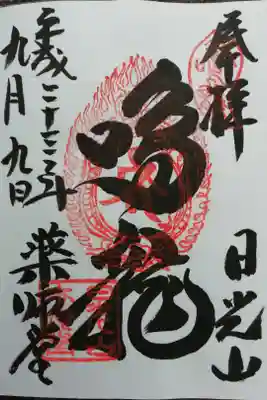 奉拝
日光山
鳴龍
薬師堂
平成二十三年
九月九日